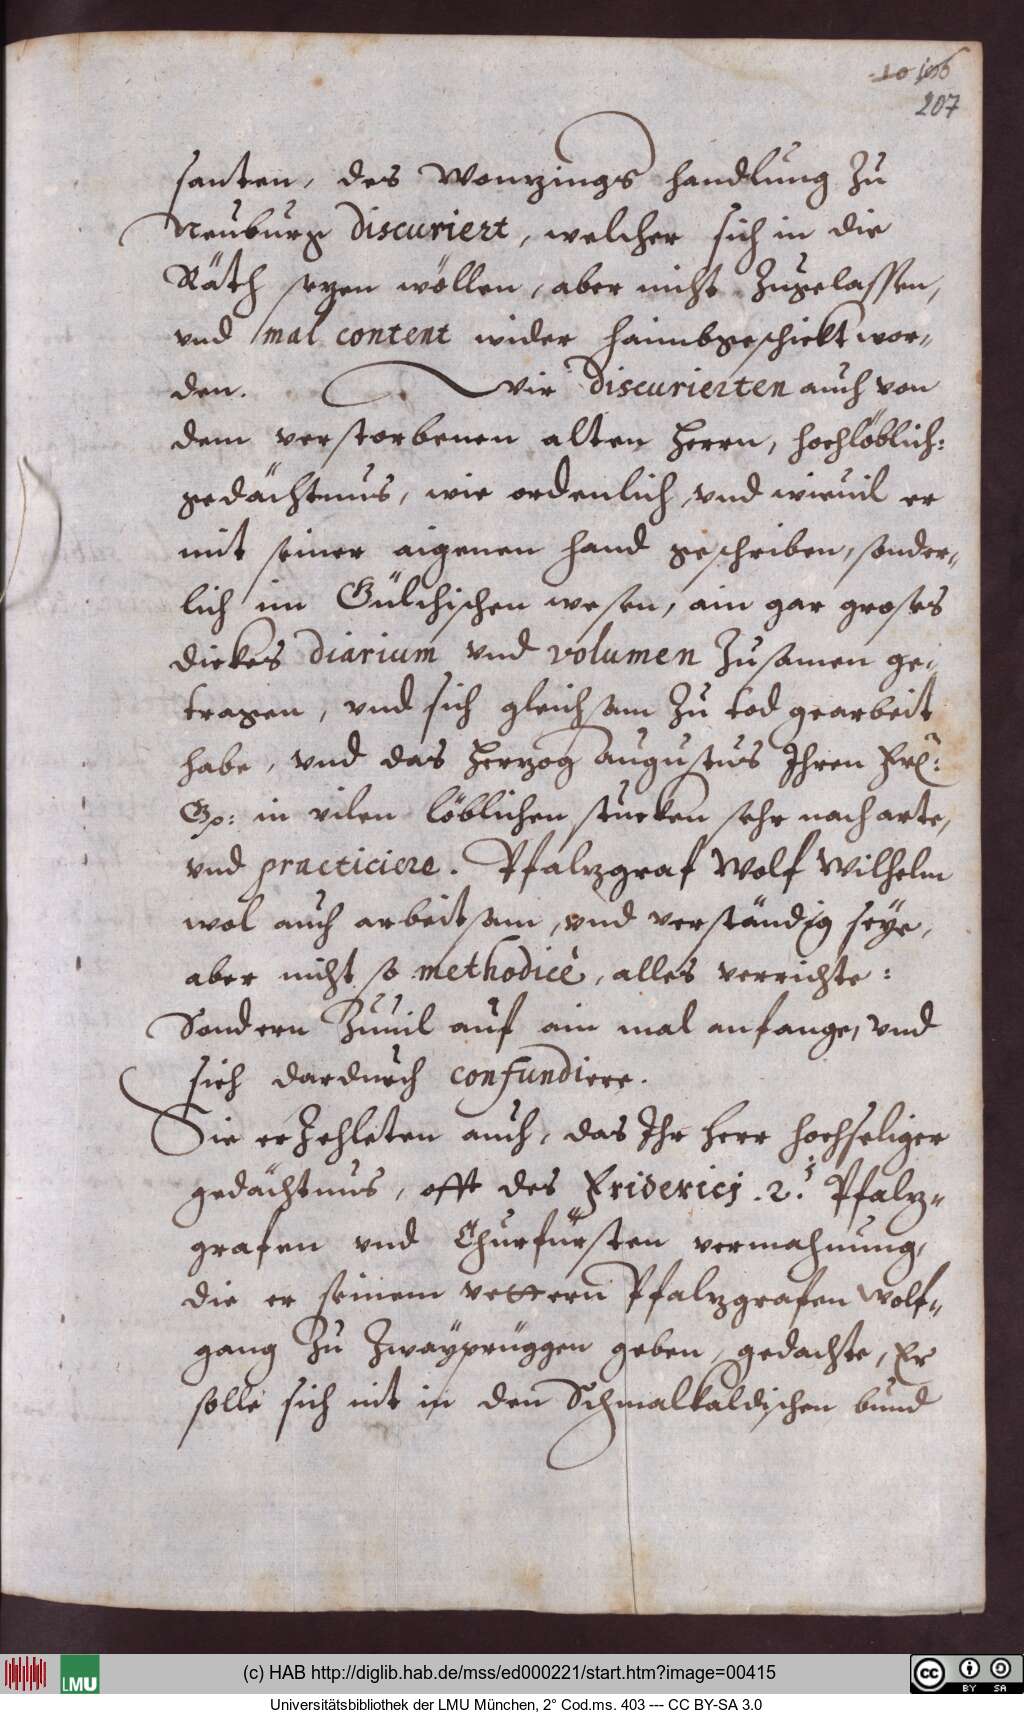 207
santen, des Wonzings handlung zu
Neuburg discuriert, welcher sich in die
Räth sezen wöllen, aber nicht zugelassen,
vnd mal content wider haimbgeschickt wor-
den. Wir discurierten auch von
dem verstorbenen alten Herrn, hochlöblich:
gedächtnus, wie ordenlich vnd wieuil er
mit seiner aigenen hand geschriben, sonder-
lich im Gülchischen wesen, ain gar groses
dickes diarium vnd volumen zusamen ge-
tragen, vnd sich gleichsam zu tod gearbeit
habe, vnd das Herzog Augustus Ihren Frl:
Gn: in vilen löblichen stucken sehr nacharte,
vnd practiciere. Pfalzgraf Wolf Wilhelm
wol auch arbeitsam, vnd verständig seye,
aber nicht so methodicè, alles verrichte:
Sondern zuuil auf ain mal anfange, vnd
sich dardurch confundiere.
Sie erzehleten auch, das Ihr Herr hochseliger
gedächtnus, offt des Fridericj .2.i Pfalz-
grafen vnd Churfürsten vermahnung,
die er seinem vettern Pfalzgrafen Wolf-
gang zu Zwayprüggen geben, gedachte, Er
solle sich nit in den Schmalkaldischen bund
(c) HAB http://diglib.hab.de/mss/ed000221/start.htm?image=00415
LMU
cc BY SA
Universitätsbibliothek der LMU München, 2° Cod.ms. 403 --- CC BY-SA 3.0